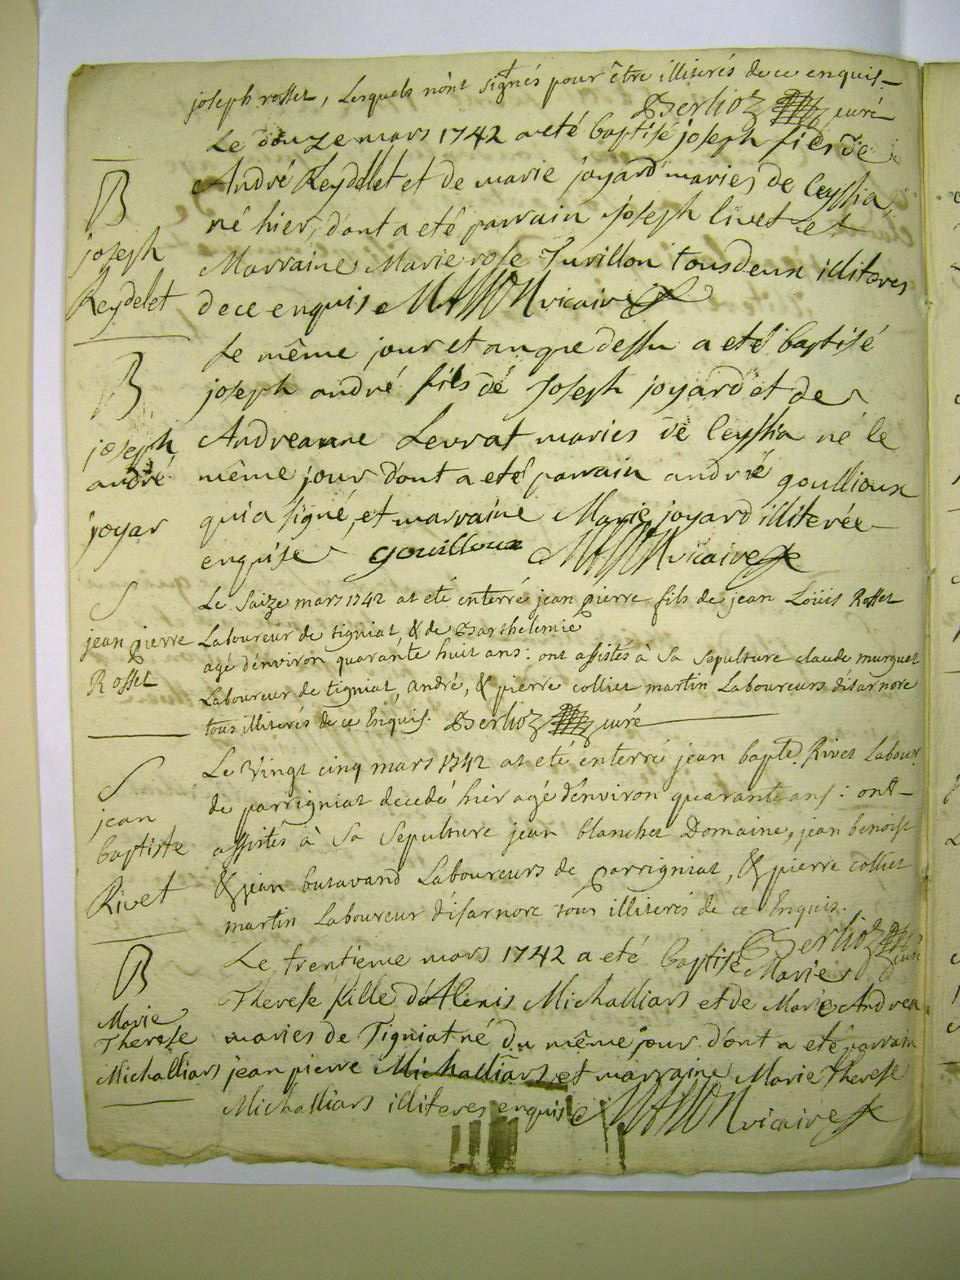 joseph rosset, Lesquels n'ont signés pour être illiterés de ce enquis
Berlioz curé
Le douze mars 1742 a eté baptisé joseph fils de
B
André Reydelet et de marie joyard mariés de Ceyssia
né hier, dont a eté parrain joseph livet et
joseph
Marraine Marie rose Turillon tous deux illiteres
Reydelet
de ce enquis Masson vicaire
Le même jour et an que dessu a eté baptisé
B
joseph andré fils dé joseph joyard et de
joseph
Andreanne Levrat maries de Ceyssia né le
andré
même jour dont a eté parrain andré goullioux
joyar
qui a signé, et marraine Marie joyard illiterée
enquise gouilloux Masson vicaire
S
Le Saize mars 1742 at eté enterré jean pierre fils de jean Loüis Rosset
jean pierre
Laboureur de tigniat, & de Barthelemie
Rosset
agé d'environ quarante huit ans: ont assistés à Sa Sepulture claude murguet
Laboureur de tigniat, andré, & pierre colliet martin Laboureurs d'isarnore
tous illiterés de ce Enquis. Berlioz curé
S
Le Vingt cinq mars 1742 at eté enterré jean bapte. Rivet Labour.
jean
de parrigniat decedé hier agé d'environ quarante ans: ont
baptiste
assistés à Sa Sepulture jean blanchet Domaine, jean benoist
Rivet
& jean butavand Laboureurs de parrigniat, & pierre colliet
martin Laboureur d'isarnore tous illiterés de ce Enquis.
Berlioz curé
B
Le trentieme mars 1742 a eté baptisé Marie
Marie
Therese fille d'Alexis Michalliars et de Marie Andrea
Therese
maries de Tigniat né du même jour dont a eté parrain
Michalliars
jean pierre Michalliars et marraine Marie Therese
Michalliars illiteres enquis Masson vicaire